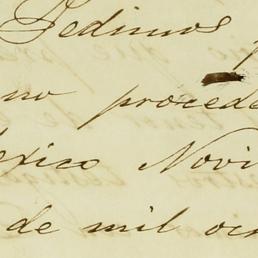 Pedimos
no procede
exico Novi
de mil oc